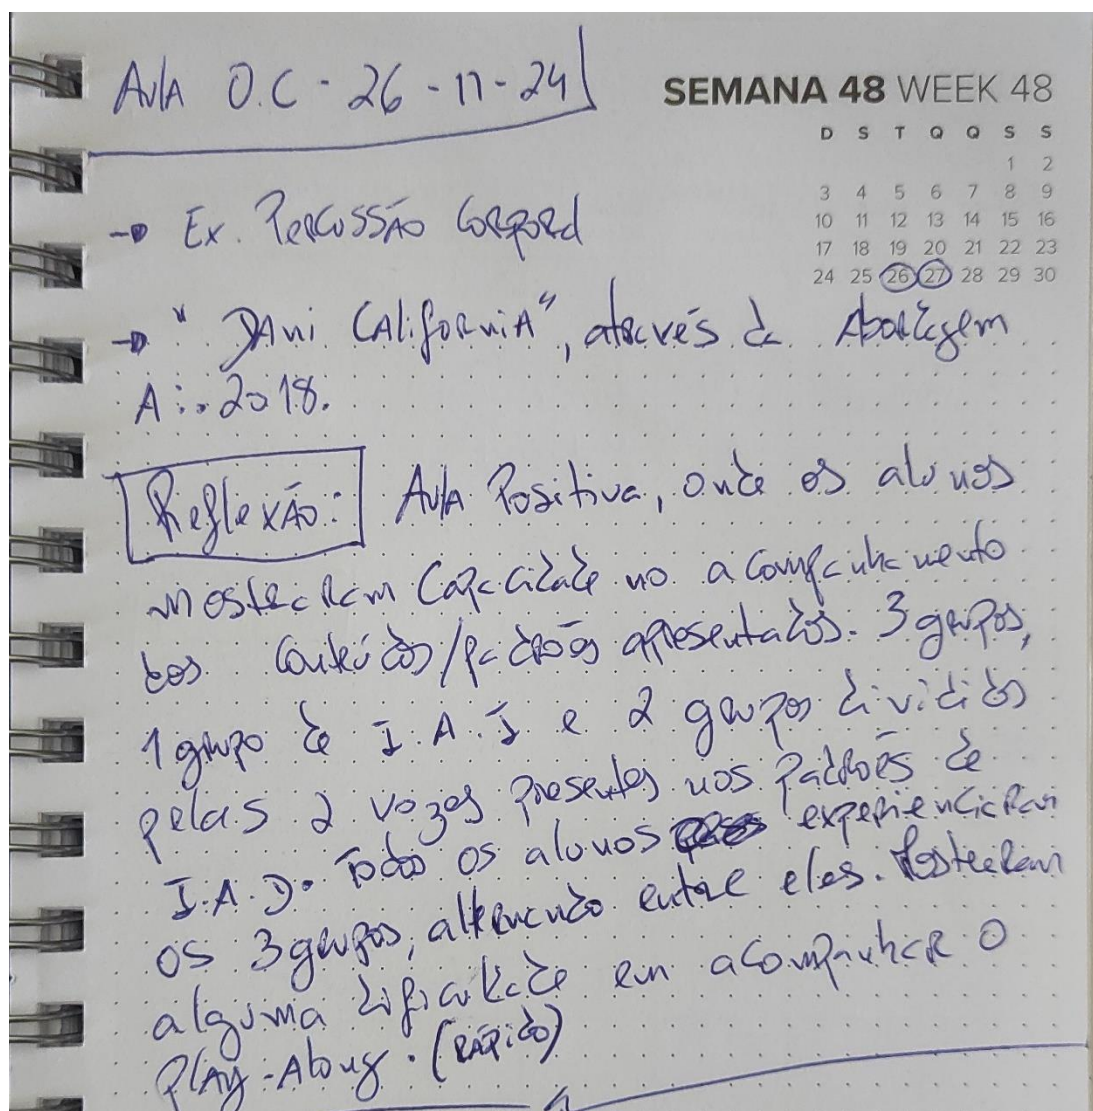 Aula O.C - 26 - 11 - 24
SEMANA 48 WEEK 48
D S T Q Q S S
1 2
3 4 5 6 7 8 9
10 11 12 13 14 15 16
17 18 19 20 21 22 23
24 25 26 27 28 29 30
→ Ex. Percussão Corporal
→ "Dani California", através da Abordagem
A:. 2018.
Reflexão: Aula Positiva, onde os alunos
mostraram capacidade no acompanhamento
dos conteúdos/padrões apresentados. 3 grupos,
1 grupo de I.A.I e 2 grupos divididos
pelas 2 vozes presentes nos padrões de
I.A.D. Todos os alunos experienciaram
os 3 grupos, alternando entre eles. Mostraram
alguma dificuldade em acompanhar o
Play-Along. (RÁPIDO)